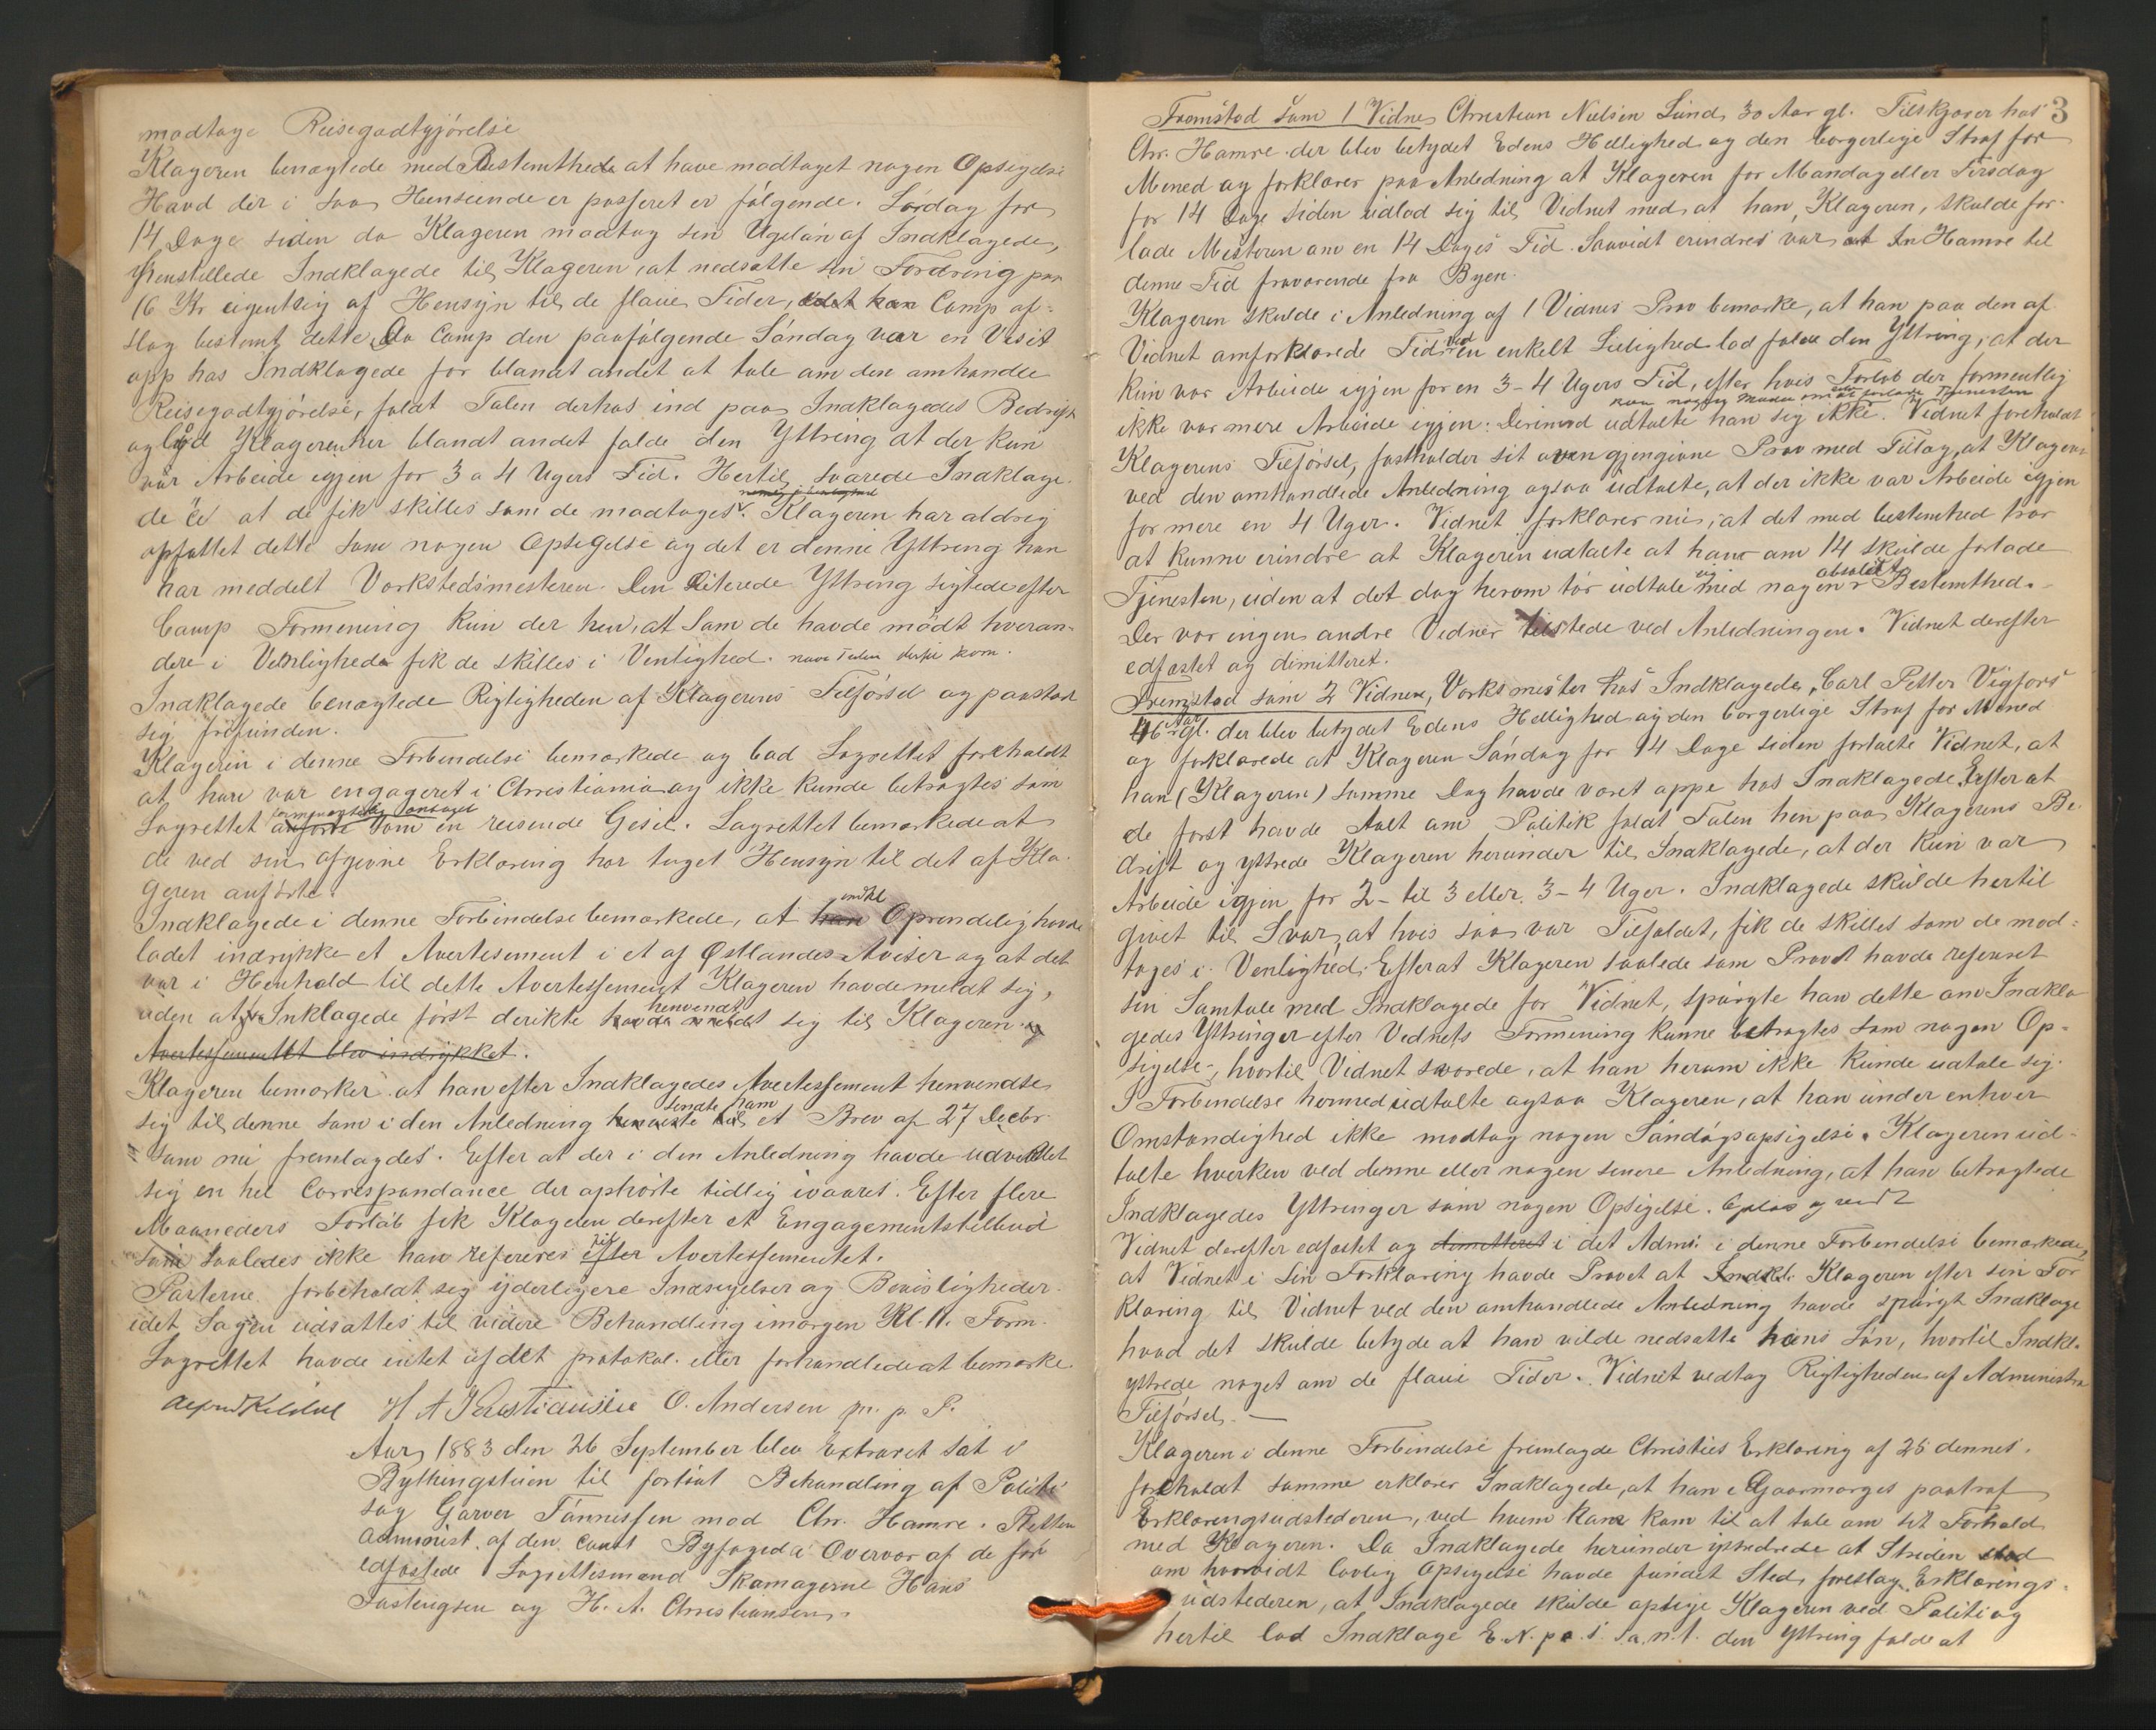 modtage Reisegodtgjörelse
Klageren benægtede med Bestemthed at have modtaget nogen Opsigelse
Havd der i saa Henseende er passeret er følgende. Lørdag for
14 Dage siden da Klageren modtog sin Ugeløn af Indklagede,
henstillede Indklagede til Klageren, at nedsætte sin Fordring paa
16 Kr eigentlig af Hensyn til de flaue Tider, Camp af-
slog bestemt dette. Da Camp den paafølgende Søndag var en Visit
opp hos Indklagede for blandt andet at tale om den omhandle
Reisegodtgjörelse, faldt Talen derhos ind paa Indklagedes Bedrift
og lod Klageren her blandt andet falde den Yttring at der kun
var Arbeide igjen for 3 a 4 Ugers Tid. Hertil svarede Indklage-
de at de fik skilles som de modtoges. Klageren har aldrig
opfattet dette som nogen Opsigelse og det er denne Yttring han
har meddelt Værkstedsmesteren. Den citerede Yttring sigtede efter
Camp Formening kun der hen, at som de havde mödt hveran-
dre i Venlighed fik de skilles i Venlighed.
Indklagede benægtede Rigtigheden af Klagerens Tilførsel og paastod
sig frifunden.
Klageren i denne Forbindelse bemærkede og bad Lagrettet foreholdt
at han var engageret i Christiania og ikke kunde betragtes som
Lagrettet som en reisende Gesel. Lagrettet bemærkede at
de ved sin afgivne Erklæring har taget Hensyn til det af Kla-
geren anførte.
Indklagede i denne Forbindelse bemærkede, at indkl Oprindelig havde
ladet indrykke et Avertesement i et af Østlandes Aviser og at det
var i Henhold til dette Avertessement Klageren havde meldt sig,
uden at Inklagede først derikte henvendt sig til Klageren
Avertessementet blev indrykket.
Klageren bemærker at han efter Indklagedes Avertessement henvendte
sig til denne som i den Anledning sendte ham et Brev af 27 Decbr
som nu fremlagdes. Efter at der i den Anledning havde udviklet
sig en hel Correspondance der ophørte tidlig ivaares. Efter flere
Maaneders Forløb fik Klageren derefter et Engagementstilbud
som saaledes ikke han refereres efter Avertessementet.
Parterne forbeholdt sig yderligere Indsigelser og Bevisligheder
idet Sagen udsattes til videre Behandling imorgen Kl. 11. Form.
Lagrettet havde intet af det protokol. eller forhandlede at bemærke.
H A Christiansen O. Andersen m. p. P.
Aar 1883 den 26 September blev Extraret sat i
Bythingstuen til fortsat Behandling af Politi
sag Garver Tönnessen mod Chr. Hamre. Retten
administ. af den const Byfoged i Overvær af de før
edfæstede Lagrettesmænd Skomagerne Hans
Justengsen og H. A. Christiansen.
3
Fremstod som 1 Vidne Christian Nielsen Lund, 30 Aar gl. Tilskjærer hos
Chr. Hamre. der blev betydet Edens Hellighed og den borgerlige Straf for
Mened og forklarer paa Anledning at Klageren for Mandag eller Tirsdag
for 14 Dage siden udlod sig til Vidnet med at han, Klageren, skulde for-
lade Mesteren om en 14 Dages Tid. Saavidt erindres var Hamre til
denne Tid fraværende fra Byen.
Klageren skulde i Anledning af 1 Vidnes Prov bemærke, at han paa den af
Vidnet omforklarede Tid ved en enkelt Leilighed lod falde den Yttring, at der
kun var Arbeide igjen for en 3-4 Ugers Tid, efter hvis Forløb der formentlig
ikke var mere Arbeide igjen. Derimod udtalte han sig ikke. Vidnet foreholdt
Klagerens Tilførsel, fastholder sit ovengjengivne Prov med Tillæg, at Klageren
ved den omhandlede Anledning ogsaa udtalte, at der ikke var Arbeide igjen
for mere en 4 Uger. Vidnet forklarer nu, at det med bestemhed tror
at kunne erindre at Klageren udtalte at han om 14 skulde forlade
Tjenesten, uden at det dog herom tør udtale sig med nogen absolut Bestemthed.
Der var ingen andre Vidner tilstede ved Anledningen. Vidnet derefter
edfæstet og dimitteret.
Fremstod som 2 Vidne, Værksmester hos Indklagede, Carl Petter Vigfors
46 Aar gl. der blev betydet Edens Hellighed og den borgerlige Straf for Mened
og forklarede at Klageren Søndag for 14 Dage siden fortalte Vidnet, at
han (Klageren) samme Dag havde været oppe hos Indklagede. Efter at
de først havde talt om Politik faldt Talen hen paa Klagerens Be-
drift og yttrede Klageren herunder til Indklagede, at der kun var
Arbeide igjen for 2- til 3 eller 3-4 Uger. Indklagede skulde hertil
givet til Svar, at hvis saa var Tilfældet, fik de skilles som de mod-
toges i Venlighed. Efterat Klageren saalede som Provet havde refereret
sin Samtale med Indklagede for Vidnet, spurgte han dette om Indkla-
gedes Yttringer efter Vidnets Formening kunne betragtes som nogen Op-
sigelse, hvortil Vidnet svarede, at han herom ikke kunde udtale sig.
I Forbindelse hermed udtalte ogsaa Klageren, at han under enhver
Omstændighed ikke modtog nogen Søndagsopsigelse. Klageren ud-
talte hverken ved denne eller nogen senere Anledning, at han betragtede
Indklagedes Yttringer som nogen Opsigelse. Oplæst og vedt
Vidnet derefter edfæstet og dimitteret i det Adms. i denne Forbindelse bemærkede,
at Vidnet i sin Forklaring havde Provet at Klageren efter sin For
klaring til Vidnet ved den omhandlede Anledning havde spurgt Indklage
hvad det skulde betyde at han vilde nedsætte hans Løn, hvortil Indkl.
yttrede noget om de flaue Tider. Vidnet vedtog Rigtigheden af Administra
Tilførsel. —
Klageren i denne Forbindelse fremlagde Christies Erklæring af 25 dennes.
foreholdt samme erklærer Indklagede, at han i Gaarmorges paatraf
Erklæringsudstederen, ved hvem han kom til at tale om sit Forhold
med Klageren. Da Indklagede herunder yttrede at Striden stod
om hvorvidt lovlig Opsigelse havde fundet Sted, foreslog Erklærings-
udstederen, at Indklagede skulde opsige Klageren ved Politi og
hertil lod Indklage den Yttring falde at